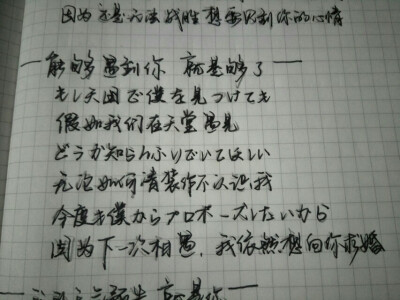 因为还是无法战胜想要见到你的心情
— 能够遇到你 就足够了 —
もし天国で僕を見つけても
假如我们在天堂遇见
どうか知らんふりでいてほしい
无论如何请装作不认识我
今度も僕からプロポーズしたいから
因为下一次相遇，我依然想向你求婚